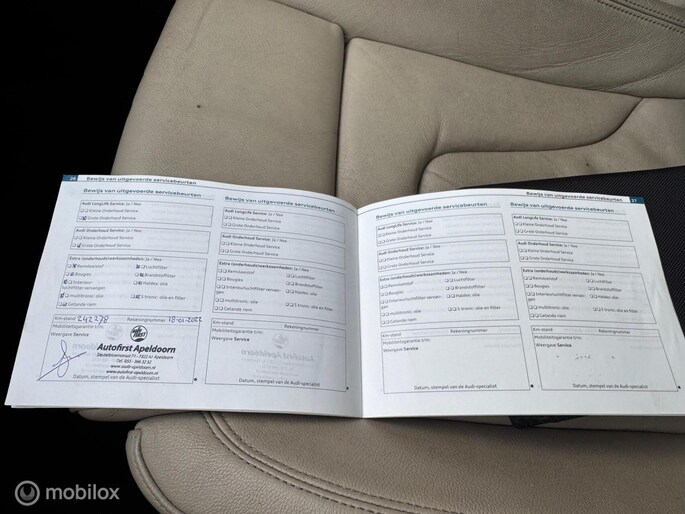 26 Bewijs van uitgevoerde servicebeurten
Bewijs van uitgevoerde servicebeurten
Audi LongLife Service: Ja / Nee
Kleine Onderhoud Service
Grote Onderhoud Service
Audi Onderhoud Service: Ja / Nee
Kleine Onderhoud Service
Grote Onderhoud Service
Extra (onderhouds)werkzaamheden: Ja / Nee
Remvloeistof
Luchtfilter
Bougies
Brandstoffilter
Interieur-
luchtfilter vervangen
Haldex: olie
multitronic: olie
S tronic: olie en filter
Getande riem
Km-stand 242278 Rekeningnummer 18-01-2022
Mobiliteitsgarantie t/m:
Weergave Service:
Autofirst Apeldoorn
Tel. 055 - 366 52 52
www.audi-apeldoorn.nl
www.autofirst-apeldoorn.nl
Datum, stempel van de Audi-specialist
Bewijs van uitgevoerde servicebeurten
Audi LongLife Service: Ja / Nee
Kleine Onderhoud Service
Grote Onderhoud Service
Audi Onderhoud Service: Ja / Nee
Kleine Onderhoud Service
Grote Onderhoud Service
Extra (onderhouds)werkzaamheden: Ja / Nee
Remvloeistof
Luchtfilter
Bougies
Brandstoffilter
Interieurluchtfilter vervan-
gen
Haldex: olie
multitronic: olie
S tronic: olie en filter
Getande riem
Km-stand Rekeningnummer
Mobiliteitsgarantie t/m:
Weergave Service:
Datum, stempel van de Audi-specialist
Bewijs van uitgevoerde servicebeurten 27
Bewijs van uitgevoerde servicebeurten
Audi LongLife Service: Ja / Nee
Kleine Onderhoud Service
Grote Onderhoud Service
Audi Onderhoud Service: Ja / Nee
Kleine Onderhoud Service
Grote Onderhoud Service
Extra (onderhouds)werkzaamheden: Ja / Nee
Remvloeistof
Luchtfilter
Bougies
Brandstoffilter
Interieurluchtfilter vervan-
gen
Haldex: olie
multitronic: olie
S tronic: olie en filter
Getande riem
Km-stand Rekeningnummer
Mobiliteitsgarantie t/m:
Weergave Service:
Datum, stempel van de Audi-specialist
Bewijs van uitgevoerde servicebeurten
Audi LongLife Service: Ja / Nee
Kleine Onderhoud Service
Grote Onderhoud Service
Audi Onderhoud Service: Ja / Nee
Kleine Onderhoud Service
Grote Onderhoud Service
Extra (onderhouds)werkzaamheden: Ja / Nee
Remvloeistof
Luchtfilter
Bougies
Brandstoffilter
Interieurluchtfilter vervan-
gen
Haldex: olie
multitronic: olie
S tronic: olie en filter
Getande riem
Km-stand Rekeningnummer
Mobiliteitsgarantie t/m:
Weergave Service:
Datum, stempel van de Audi-specialist
mobilox